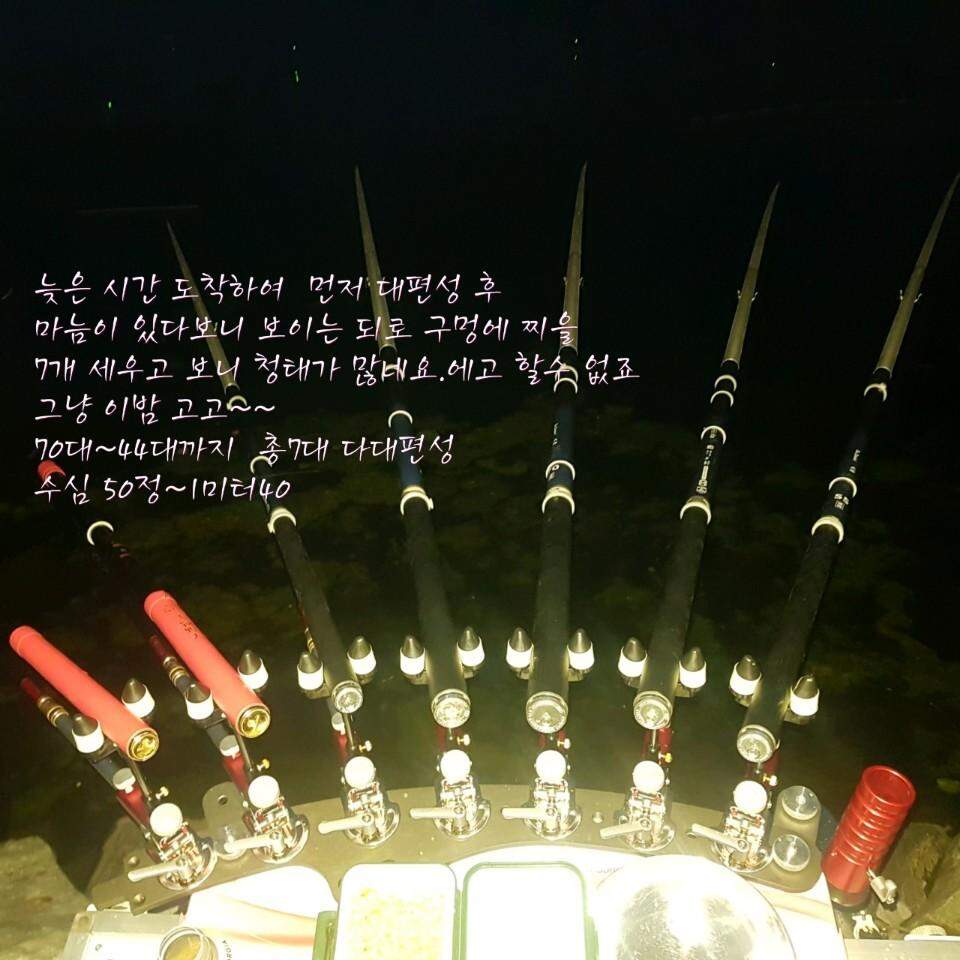 늦은 시간 도착하여 먼저 대편성 후
마늠이 있다보니 보이는 되로 구멍에 찌을
7개 세우고 보니 청태가 많네요.에고 할수 없죠
그냥 이밤 고고~~
70대~44대까지 총7대 다대편성
수심 50정~1미터40